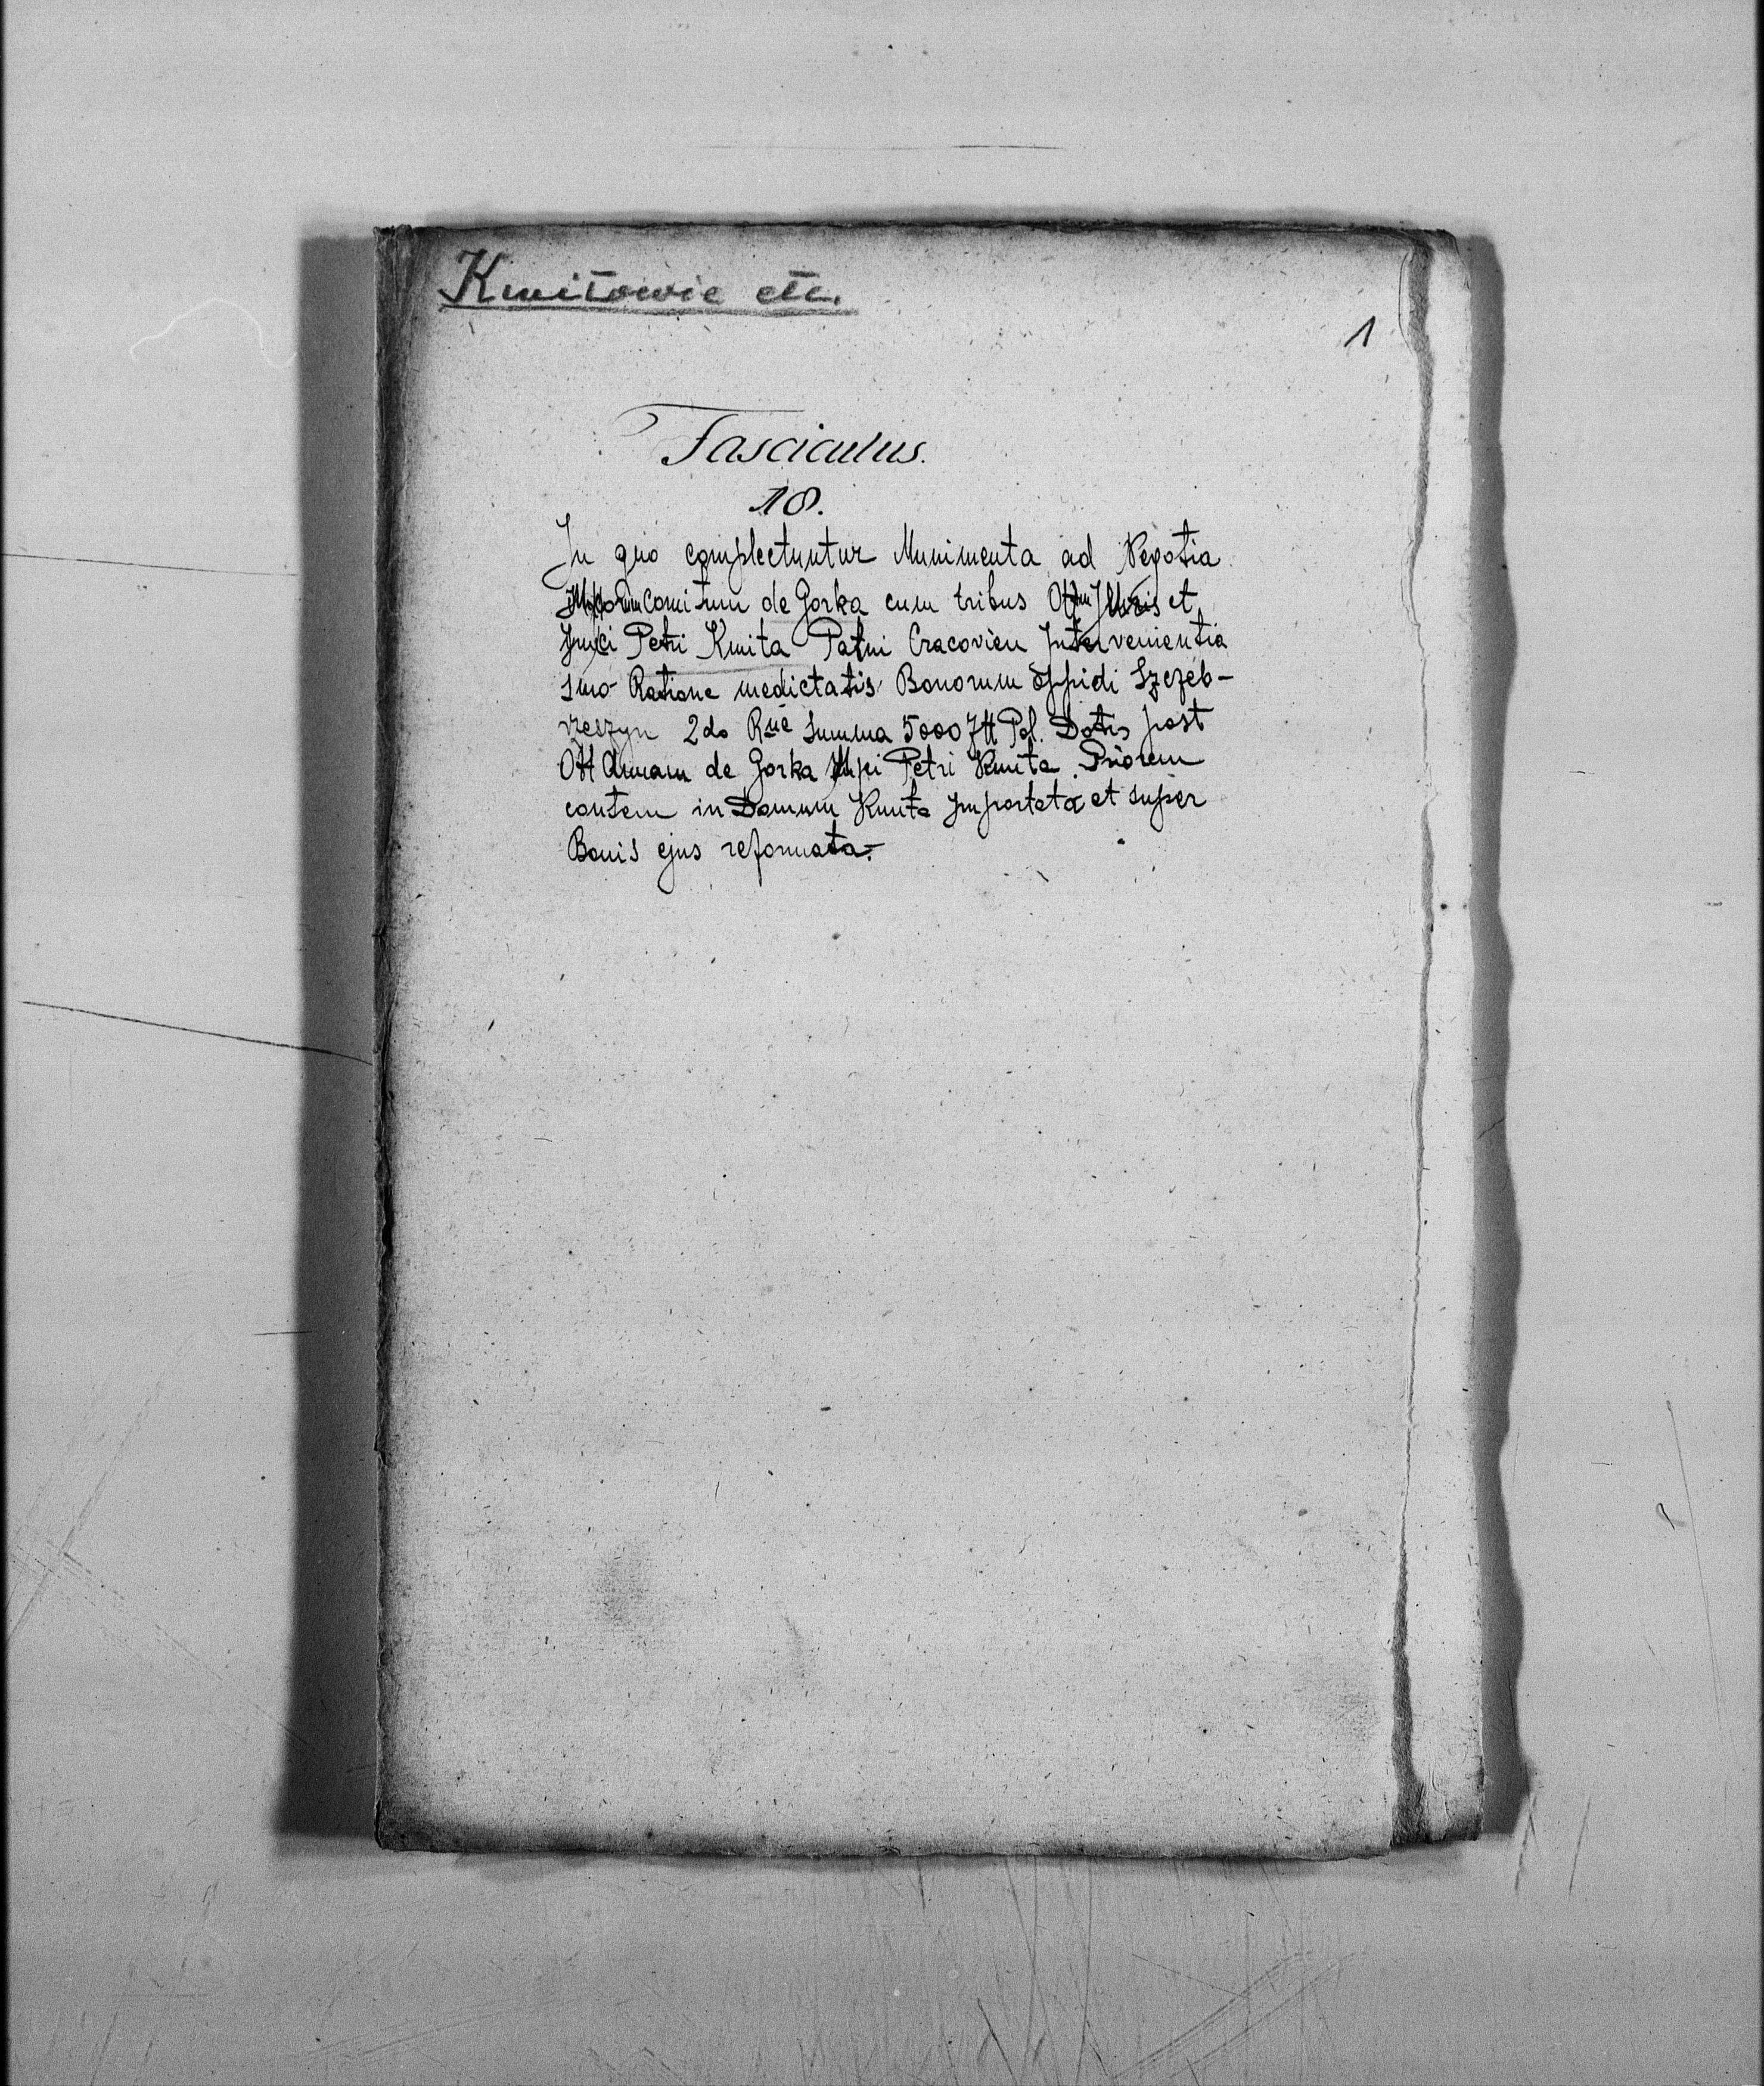 Kmitowie etc.
1
Fasciculus.
18.
In quo complectuntur Munimenta ad Negotia
Comitum de Gorka cum tribus et
Petri Kmita Patni Cracovien Intervenientia
1mo Ratione medietatis Bonorum Oppidi Szczeb-
rzeszyn 2do Rne Summa 5000 Pol. Dotis post
Annam de Gorka Petri Kmita Priorem
contem in Domum Kmita Importata et super
Bonis ejus reformata.